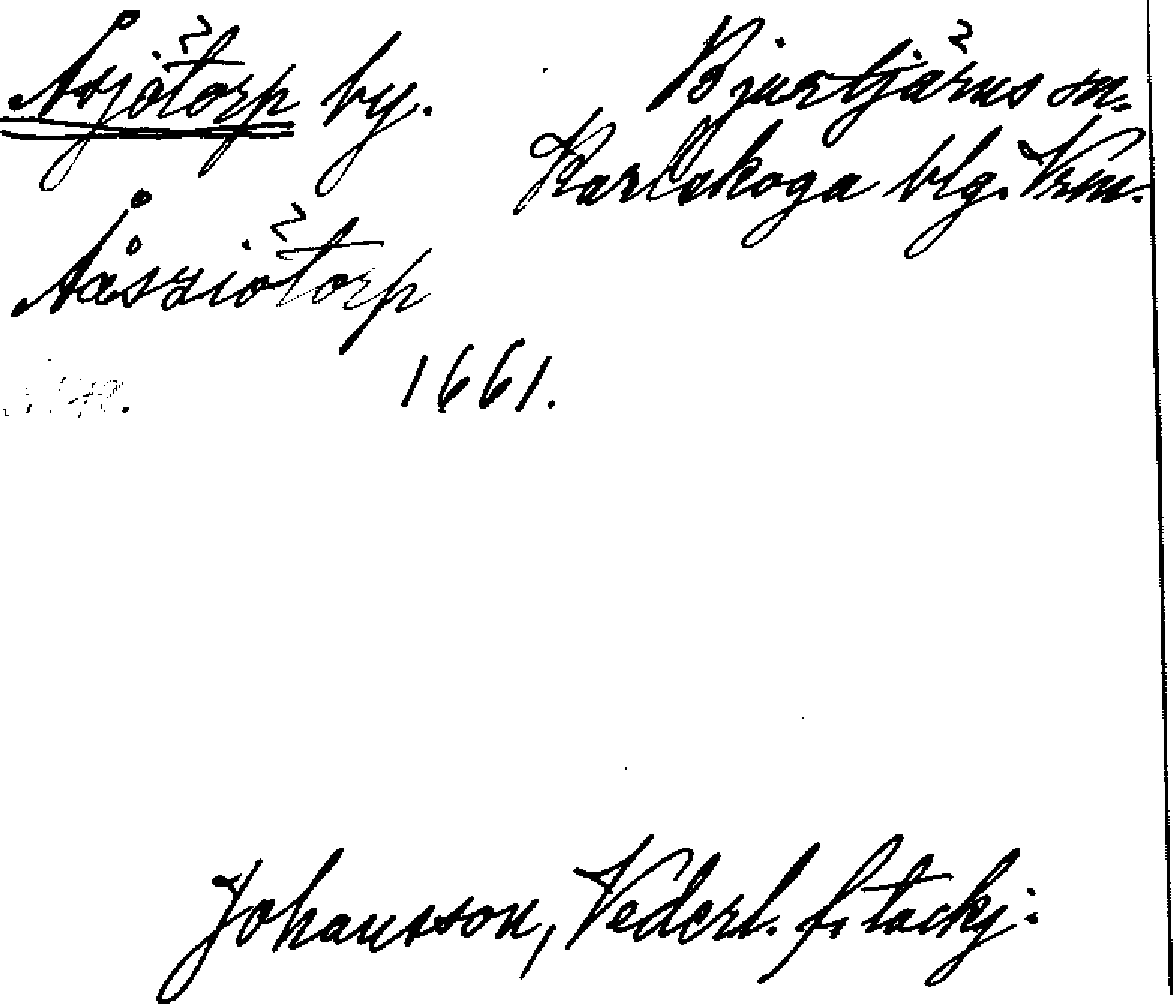 Åsjötorp by.
Bjurtjärns sn.
Karlskoga blg. Vrm.
Ååssziötorp
1661.
Johansson, Vederl. f. tackj: